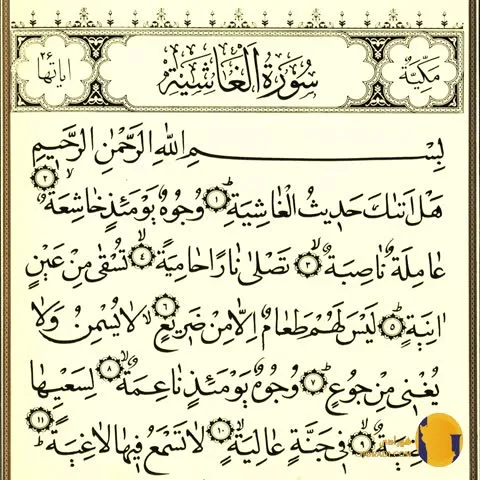 مَكِّيَّةٌ سُورَةُ الْغَاشِيَةِ اٰيَاتُهَا ٢٦
بِسْمِ اللّٰهِ الرَّحْمٰنِ الرَّحٖيمِ
هَلْ اَتٰيكَ حَدٖيثُ الْغَاشِيَةِ ١ وُجُوهٌ يَوْمَئِذٍ خَاشِعَةٌ ٢
عَامِلَةٌ نَاصِبَةٌ ٣ تَصْلٰى نَارًا حَامِيَةً ٤ تُسْقٰى مِنْ عَيْنٍ
اٰنِيَةٍ ٥ لَيْسَ لَهُمْ طَعَامٌ اِلَّا مِنْ ضَرٖيعٍ ٦ لَا يُسْمِنُ وَلَا
يُغْنٖى مِنْ جُوعٍ ٧ وُجُوهٌ يَوْمَئِذٍ نَاعِمَةٌ ٨ لِسَعْيِهَا
٩ فٖى جَنَّةٍ عَالِيَةٍ ١٠ لَا تَسْمَعُ فٖيهَا لَاغِيَةً ١١